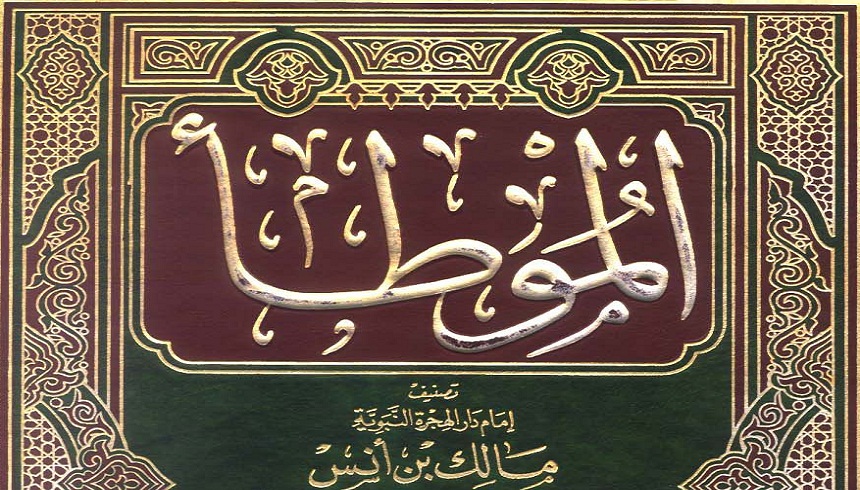 الموطأ
تصنيف
إمام دار الهجرة النبوية
مالك بن أنس